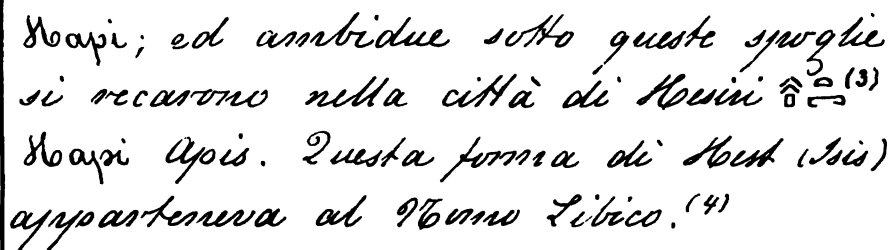 Hapi; ed ambidue sotto queste spoglie
si recarono nella città di Hesiri (3)
Hapi Apis. Questa forma di Hest (Isis)
apparteneva al Nomo Libico. (4)